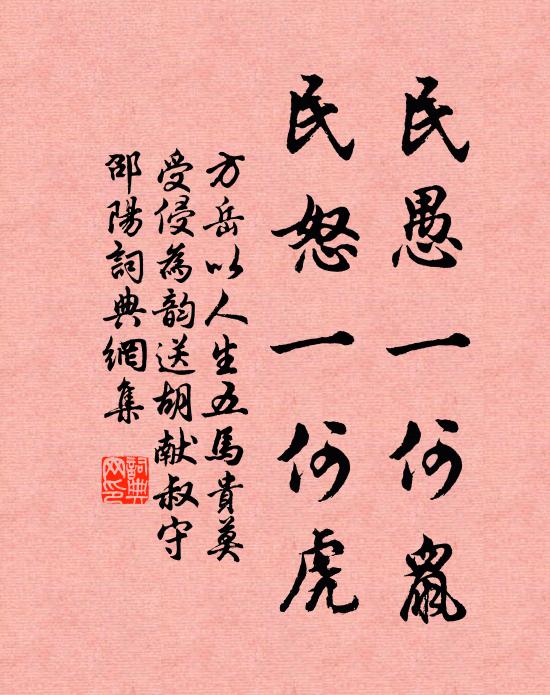 民愚一何鼠
民怒一何虎
方岳以人生五馬貴莫
受侵為韵送胡献叔守
邵陽詞典網集
詞典
网印